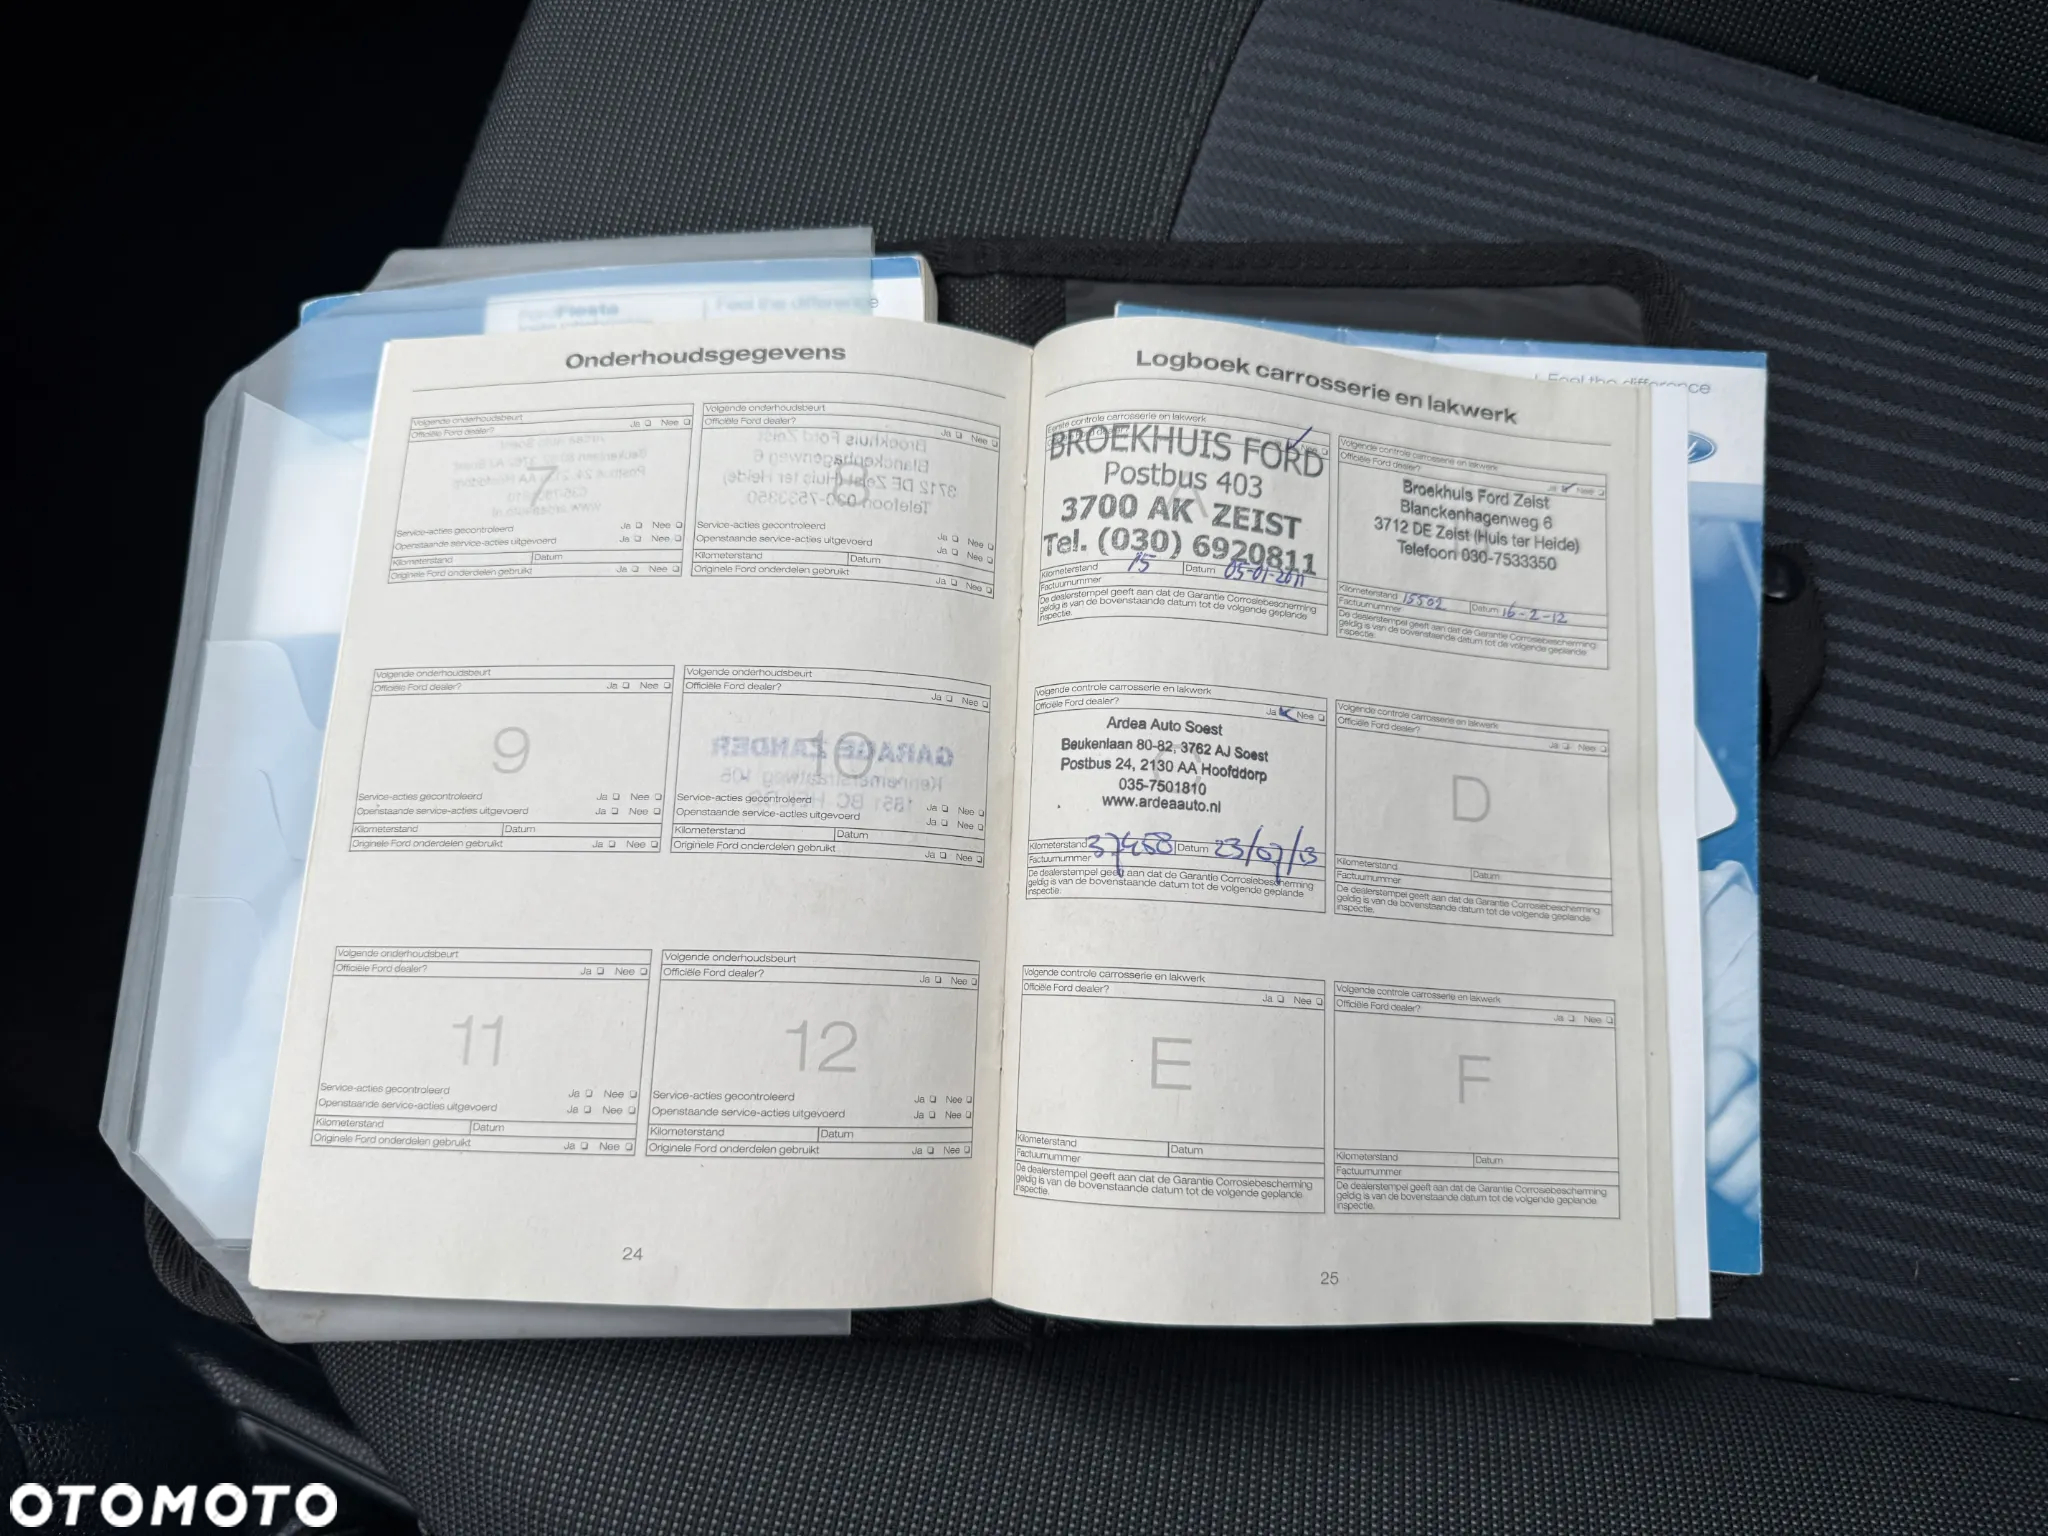 Fiesta
Feel the difference
Feel the difference
Onderhoudsgegevens
Volgende onderhoudsbeurt
Officiële Ford dealer?
Ja Nee
7
Service-acties gecontroleerd
Ja Nee
Openstaande service-acties uitgevoerd
Ja Nee
Kilometerstand Datum
Originele Ford onderdelen gebruikt
Ja Nee
Volgende onderhoudsbeurt
Officiële Ford dealer?
Ja Nee
8
Broekhuis Ford Zeist
Blanckenhagenweg 6
3712 DE Zeist (Huis ter Heide)
Telefoon 030-7533350
Service-acties gecontroleerd
Ja Nee
Openstaande service-acties uitgevoerd
Ja Nee
Kilometerstand Datum
Originele Ford onderdelen gebruikt
Ja Nee
Volgende onderhoudsbeurt
Officiële Ford dealer?
Ja Nee
9
Service-acties gecontroleerd
Ja Nee
Openstaande service-acties uitgevoerd
Ja Nee
Kilometerstand Datum
Originele Ford onderdelen gebruikt
Ja Nee
Volgende onderhoudsbeurt
Officiële Ford dealer?
Ja Nee
10
GARAGE ZANDER
Kennemerstraatweg
Service-acties gecontroleerd
Ja Nee
Openstaande service-acties uitgevoerd
Ja Nee
Kilometerstand Datum
Originele Ford onderdelen gebruikt
Ja Nee
Volgende onderhoudsbeurt
Officiële Ford dealer?
Ja Nee
11
Service-acties gecontroleerd
Ja Nee
Openstaande service-acties uitgevoerd
Ja Nee
Kilometerstand Datum
Originele Ford onderdelen gebruikt
Ja Nee
Volgende onderhoudsbeurt
Officiële Ford dealer?
Ja Nee
12
Service-acties gecontroleerd
Ja Nee
Openstaande service-acties uitgevoerd
Ja Nee
Kilometerstand Datum
Originele Ford onderdelen gebruikt
Ja Nee
24
Logboek carrosserie en lakwerk
Eerste controle carrosserie en lakwerk
BROEKHUIS FORD
Postbus 403
3700 AK ZEIST
Tel. (030) 6920811
Kilometerstand 15 Datum 05-01-2011
Factuurnummer
De dealerstempel geeft aan dat de Garantie Corrosiebescherming
geldig is van de bovenstaande datum tot de volgende geplande
inspectie.
Volgende controle carrosserie en lakwerk
Officiële Ford dealer?
Ja Nee
Broekhuis Ford Zeist
Blanckenhagenweg 6
3712 DE Zeist (Huis ter Heide)
Telefoon 030-7533350
Kilometerstand 15502 Datum 16-2-12
Factuurnummer
De dealerstempel geeft aan dat de Garantie Corrosiebescherming
geldig is van de bovenstaande datum tot de volgende geplande
inspectie.
Volgende controle carrosserie en lakwerk
Officiële Ford dealer?
Ja Nee
C
Ardea Auto Soest
Beukenlaan 80-82, 3762 AJ Soest
Postbus 24, 2130 AA Hoofddorp
035-7501810
www.ardeaauto.nl
Kilometerstand 37458 Datum 23/07/13
Factuurnummer
De dealerstempel geeft aan dat de Garantie Corrosiebescherming
geldig is van de bovenstaande datum tot de volgende geplande
inspectie.
Volgende controle carrosserie en lakwerk
Officiële Ford dealer?
Ja Nee
D
Kilometerstand Datum
Factuurnummer
De dealerstempel geeft aan dat de Garantie Corrosiebescherming
geldig is van de bovenstaande datum tot de volgende geplande
inspectie.
Volgende controle carrosserie en lakwerk
Officiële Ford dealer?
Ja Nee
E
Kilometerstand Datum
Factuurnummer
De dealerstempel geeft aan dat de Garantie Corrosiebescherming
geldig is van de bovenstaande datum tot de volgende geplande
inspectie.
Volgende controle carrosserie en lakwerk
Officiële Ford dealer?
Ja Nee
F
Kilometerstand Datum
Factuurnummer
De dealerstempel geeft aan dat de Garantie Corrosiebescherming
geldig is van de bovenstaande datum tot de volgende geplande
inspectie.
25
OTOMOTO